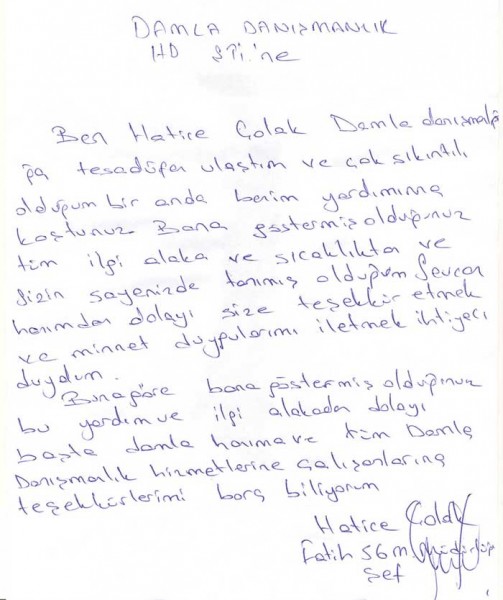 DAMLA DANIŞMANLIK
HD ŞTİ.'ne
Ben Hatice Çolak Damla danışmalığ
ğa tesadüfen ulaştım ve çok sıkıntılı
olduğum bir anda benim yardımıma
koştunuz Bana göstermiş olduğunuz
tüm ilgi alaka ve sıcaklıktan ve
sizin sayenizde tanımış olduğum Sevcan
hanımdan dolayı size teşekkür etmek
ve minnet duygularımı iletmek ihtiyacı
duydum.
Buna göre bana göstermiş olduğunuz
bu yardım ve ilgi alakadan dolayı
başta damla hanıma ve tüm Damla
Danışmanlık hizmetlerine çalışanlarına
teşekkürlerimi borç biliyorum
Hatice Çolak
Fatih SGM
Şef